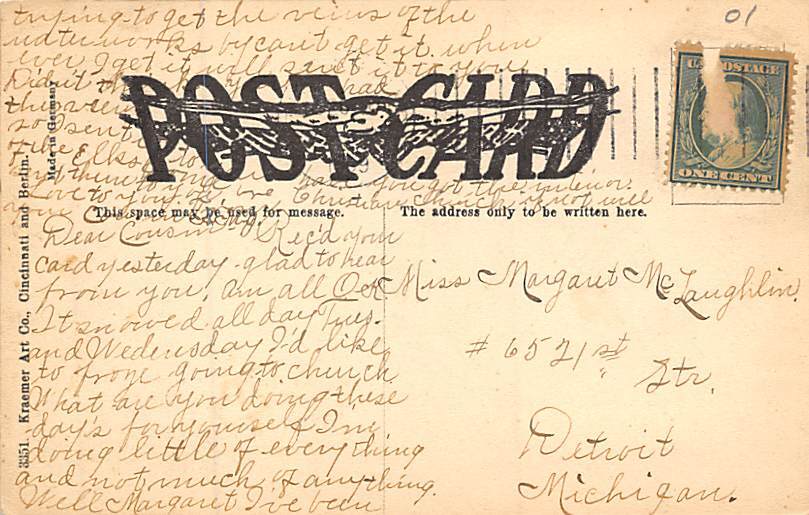 01
trying to get the views of the
waterworks by cant get it when
ever I get it will send it to you
Didn't
the
so I sent
of the Elks
Love to you
have you got the interior
Christian Church if not will
POST CARD
U.S. POSTAGE
ONE CENT
This space may be used for message.
The address only to be written here.
Dear Cousin:- Rec'd your
card yesterday - glad to hear
from you. am all O.K
It snowed all day Tues.
and Wedensday I'd like
to froze going to church
What are you doing these
day's for yourself I'm
doing little of everything
and not much of anything.
Well Margaret I've been
Miss Margaret McLaughlin.
# 65 21st
Str.
Detroit
Michigan.
3351. Kraemer Art Co., Cincinnati and Berlin.
Made in Germany